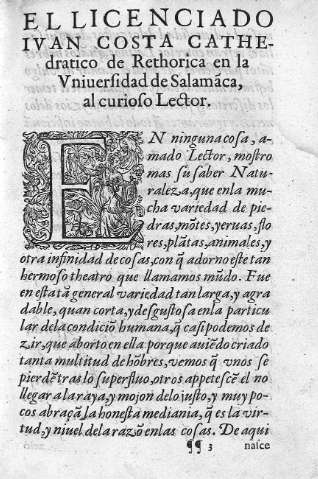 EL LICENCIADO
IVAN COSTA CATHE-
dratico de Rethorica en la
Vniuersidad de Salamãca,
al curioso Lector.
EN ninguna cosa, a-
mado Lector, mostro
mas su saber Natu-
raleza, que en la mu
cha variedad de pie-
dras, mõtes, yeruas, flo
res, plãtas, animales, y
otra infinidad de cosas, con q̃ adorno este tan
hermoso theatro que llamamos mũdo. Fue
en esta tã general variedad tan larga, y agra
dable, quan corta, y desgustosa en la particu
lar de la condiciõ humana, q̃ casi podemos de
zir, que aborto en ella porque auiẽdo criado
tanta multitud de hõbres, vemos q̃ vnos se
pierdẽ tras lo superfluo, otros appetescẽ el no
llegar a la raya, y mojon de lo justo, y muy po-
cos abraçã la honesta mediania, q̃ es la vir-
tud, y niuel de la razõ en las cosas. De aqui
¶¶ 3 nasce